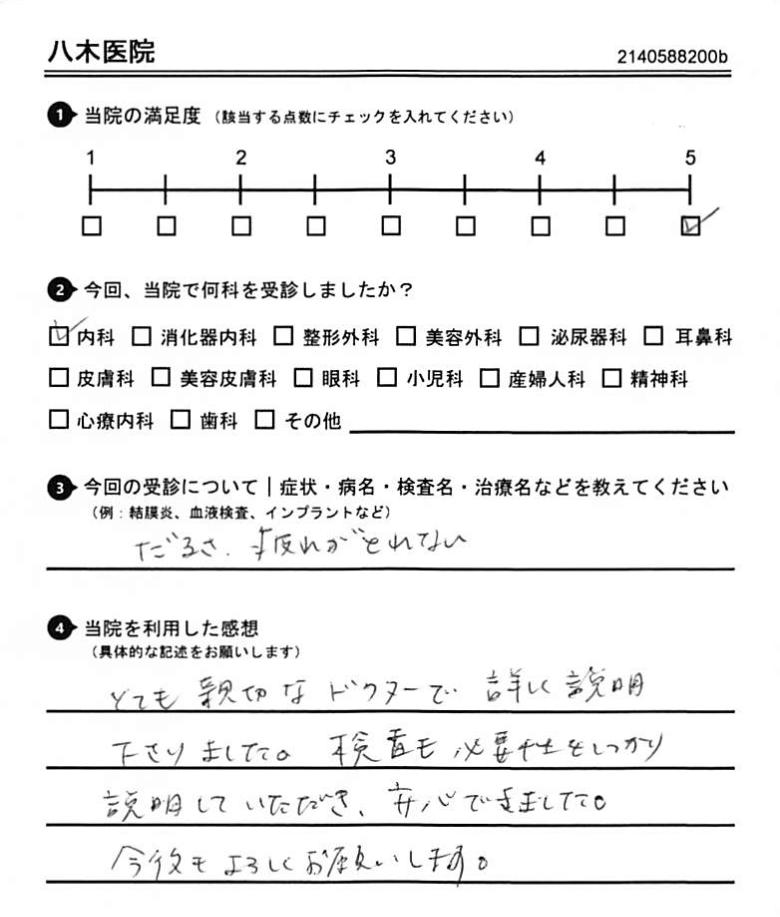 八木医院
2140588200b
1 当院の満足度（該当する点数にチェックを入れてください）
1 2 3 4 5
2 今回、当院で何科を受診しましたか？
内科 消化器内科 整形外科 美容外科 泌尿器科 耳鼻科
皮膚科 美容皮膚科 眼科 小児科 産婦人科 精神科
心療内科 歯科 その他
3 今回の受診について｜症状・病名・検査名・治療名などを教えてください
（例：結膜炎、血液検査、インプラントなど）
だるさ、疲れがとれない
4 当院を利用した感想
（具体的な記述をお願いします）
とても親切なドクターで詳しく説明
下さりました。検査も必要性をしっかり
説明していただき、安心できました。
今後もよろしくお願いします。